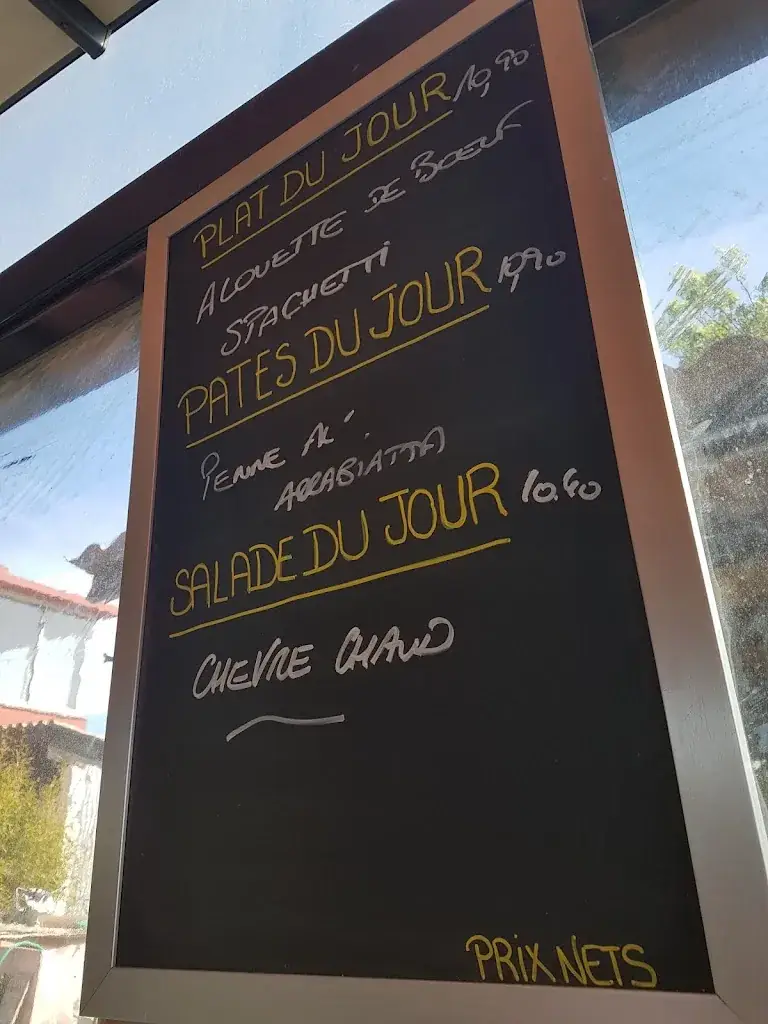 PLAT DU JOUR 10,90
ALOUETTE DE BOEUF
SPAGHETTI
PATES DU JOUR 10,90
PENNE AL'
ARRABIATTA
SALADE DU JOUR 10.40
CHEVRE CHAUD
PRIX NETS